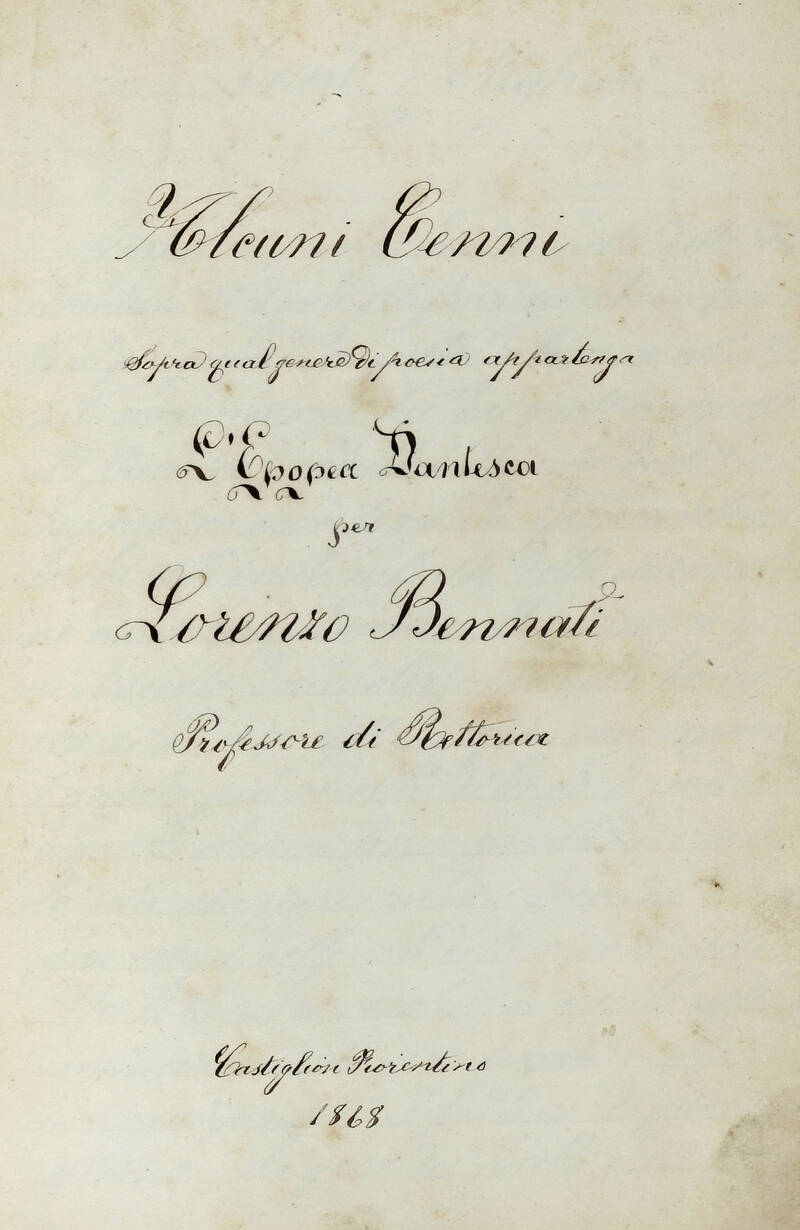 Alcuni Cenni
Sopra qual genere di poesia appartenga
L'Epopea Dantesca
per
Lorenzo Bennati
Professore di Rettorica
Castiglion Fiorentino
1868